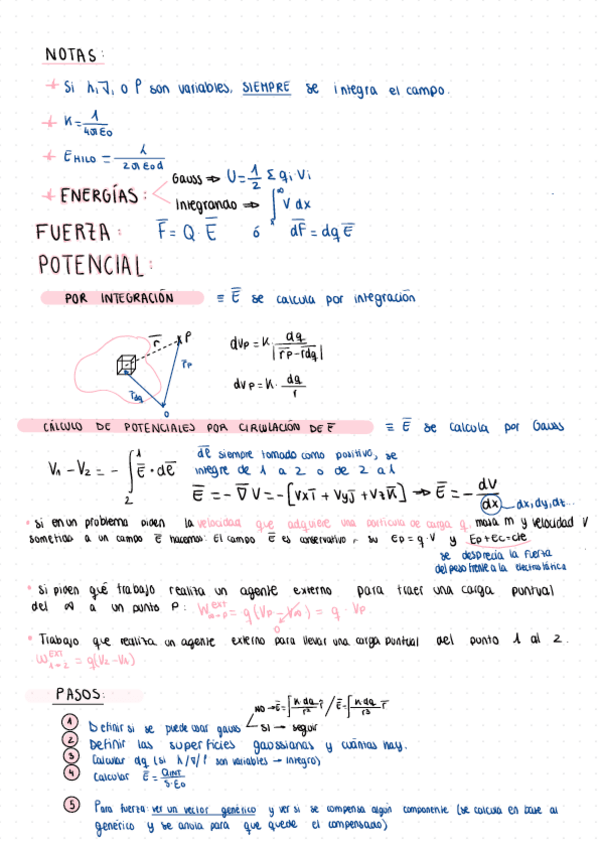 NOTAS:
+ Si λ, ∇, o ρ son variables, SIEMPRE se integra el campo.
+ K = 1 / 4πεo
+ E HILO = λ / 2πεo d
+ ENERGÍAS: Gauss ⇒ U = 1/2 Σ qi · Vi
Integrando ⇒ ∫ V dx
FUERZA: F = Q · E ó dF = dq E
POTENCIAL:
POR INTEGRACIÓN ≡ E se calcula por integración
r P
dVp = K · dq / |rp - rdq|
rp
rdq
dVp = K · dq / r
O
CÁLCULO DE POTENCIALES POR CIRCULACIÓN DE E ≡ E se calcula por Gauss
dl siempre tomado como positivo, se
integre de 1 a 2 o de 2 a 1
V1 - V2 = - ∫ 1 2 E · dl
E = - ∇V = - [Vx i + Vy j + Vz k] → E = - dV / dx dx, dy, dz...
* Si en un problema piden la velocidad que adquiere una partícula de carga q, masa m y velocidad V
sometida a un campo E hacemos: El campo E es conservativo, su Ep = q · V y Ep + Ec = cte
se desprecia la fuerza
del peso frente a la electrostática
* Si piden qué trabajo realiza un agente externo para traer una carga puntual
del ∞ a un punto P: W ext ∞→P = q (Vp - V∞) = q · Vp
0
* Trabajo que realiza un agente externo para llevar una carga puntual del punto 1 al 2.
W ext 1→2 = q(V2 - V1)
PASOS:
NO → E = ∫ K dq / r² r / E = ∫ K dq / r³ r
1 Definir si se puede usar gauss SI → seguir
2 Definir las superficies gaussianas y cuántas hay.
3 Calcular dq (si λ/∇/ρ son variables → integro)
4 Calcular E = QINT / S·εo
5 Para fuerza: ver un vector genérico y ver si se compensa algún componente (se calcula en base al
genérico y se anula para que quede el compensado)